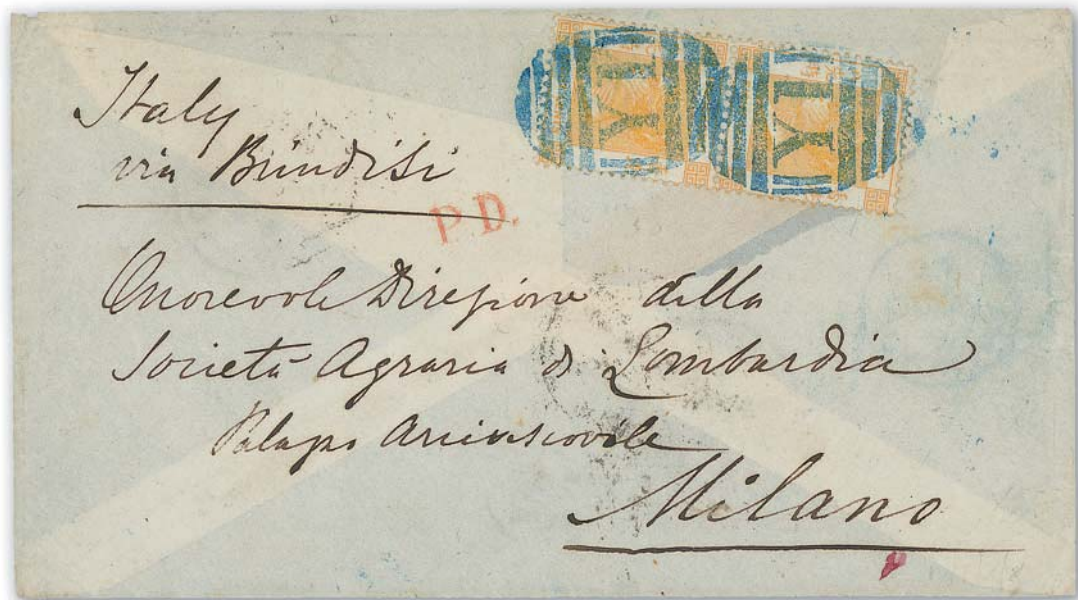 Italy
via Brindisi
P.D.
Y1 Y1
Onorevole Direzione della
Società Agraria di Lombardia
Palazzo Arcivescovile
Milano